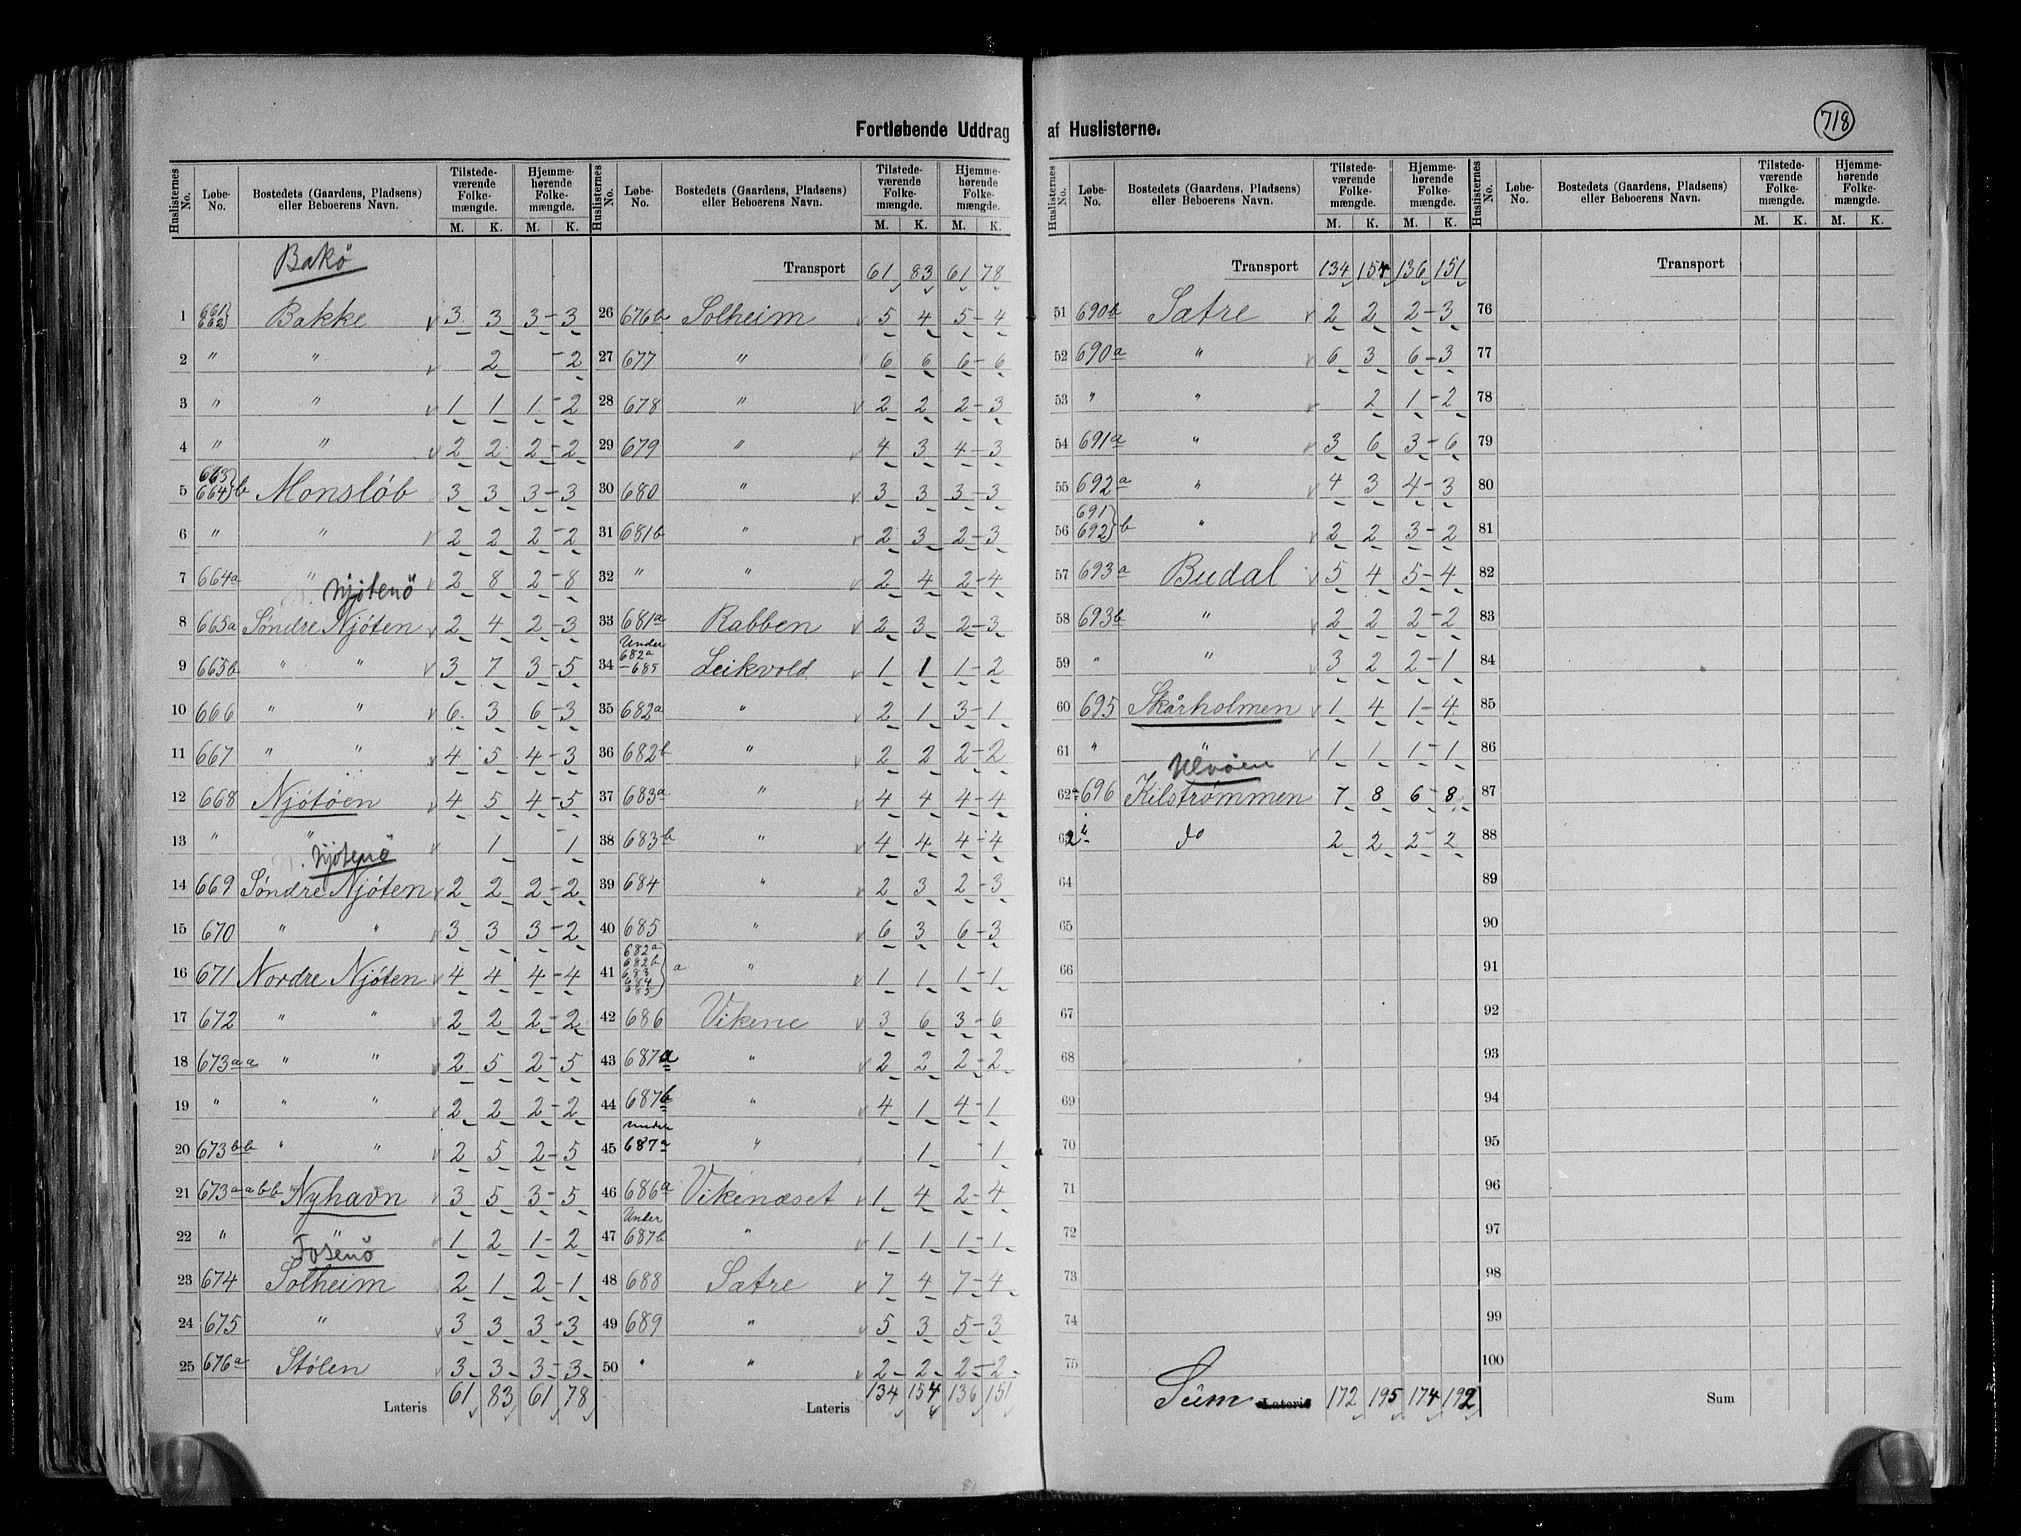 718
Fortløbende Uddrag af Huslisterne.
Huslisternes No. Løbe-No. Bostedets (Gaardens, Pladsens) eller Beboerens Navn. Tilstedeværende Folkemængde. M. K. Hjemmehørende Folkemængde. M. K.
Bakö
1 661 662 Bakke 3 3 3-3
2 " " 2 -2
3 " " 1 1 1-2
4 " " 2 2 2-2
5 663 664 b Monsløb 3 3 3-3
6 " " 2 2 2-2
7 664a " 2 8 2-8
Njötenö
8 665a Søndre Njøten 2 4 2-3
9 665b " " 3 7 3-5
10 666 " " 6 3 6-3
11 667 " " 4 5 4-3
12 668 Njøtøen 4 5 4-5
13 " " 1 -1
Njötenö
14 669 Søndre Njøten 2 2 2-2
15 670 " " 3 3 3-2
16 671 Nordre Njøten 4 4 4-4
17 672 " " 2 2 2-2
18 673aa " " 2 5 2-5
19 " " " 2 2 2-2
20 673bb " " 2 5 2-5
21 673aabb Nyhavn 3 5 3-5
22 " " 1 2 1-2
Fosenö
23 674 Solheim 2 1 2-1
24 675 " 3 3 3-3
25 676a Stølen 3 3 3-3
Lateris 61 83 61 78
Huslisternes No. Løbe-No. Bostedets (Gaardens, Pladsens) eller Beboerens Navn. Tilstedeværende Folkemængde. M. K. Hjemmehørende Folkemængde. M. K.
Transport 61 83 61 78
26 676b Solheim 5 4 5-4
27 677 " 6 6 6-6
28 678 " 2 2 2-3
29 679 " 4 3 4-3
30 680 " 3 3 3-3
31 681b " 2 3 2-3
32 " " 2 4 2-4
33 681a Rabben 2 3 2-3
34 Under 682a -685 Leikvold 1 1 1-2
35 682a " 2 1 3-1
36 682b " 2 2 2-2
37 683a " 4 4 4-4
38 683b " 4 4 4-4
39 684 " 2 3 2-3
40 685 " 6 3 6-3
41 682a 682b 683 684 685 a " 1 1 1-1
42 686 Vikene 3 6 3-6
43 687a " 2 2 2-2
44 687b " 4 1 4-1
45 under 687a " 1 -1
46 686a Vikenæset 1 4 2-4
47 Under 687b " 1 1 1-1
48 688 Sætre 7 4 7-4
49 689 " 5 3 5-3
50 " " 2 2 2-2
Lateris 134 154 136 151
Huslisternes No. Løbe-No. Bostedets (Gaardens, Pladsens) eller Beboerens Navn. Tilstedeværende Folkemængde. M. K. Hjemmehørende Folkemængde. M. K.
Transport 134 154 136 151
51 690b Sætre 2 2 2-3
52 690a " 6 3 6-3
53 " " 2 1-2
54 691a " 3 6 3-6
55 692a " 4 3 4-3
56 691 692 b " 2 2 3-2
57 693a Budal 5 4 5-4
58 693b " 2 2 2-2
59 " " 3 2 2-1
60 695 Skårholmen 1 4 1-4
61 " " 1 1 1-1
Ulvöen
62 696 Kilstrømmen 7 8 6-8
63 " do 2 2 2-2
64
65
66
67
68
69
70
71
72
73
74
75
Sum Lateris 172 195 174 192
Huslisternes No. Løbe-No. Bostedets (Gaardens, Pladsens) eller Beboerens Navn. Tilstedeværende Folkemængde. M. K. Hjemmehørende Folkemængde. M. K.
Transport
76
77
78
79
80
81
82
83
84
85
86
87
88
89
90
91
92
93
94
95
96
97
98
99
100
Sum